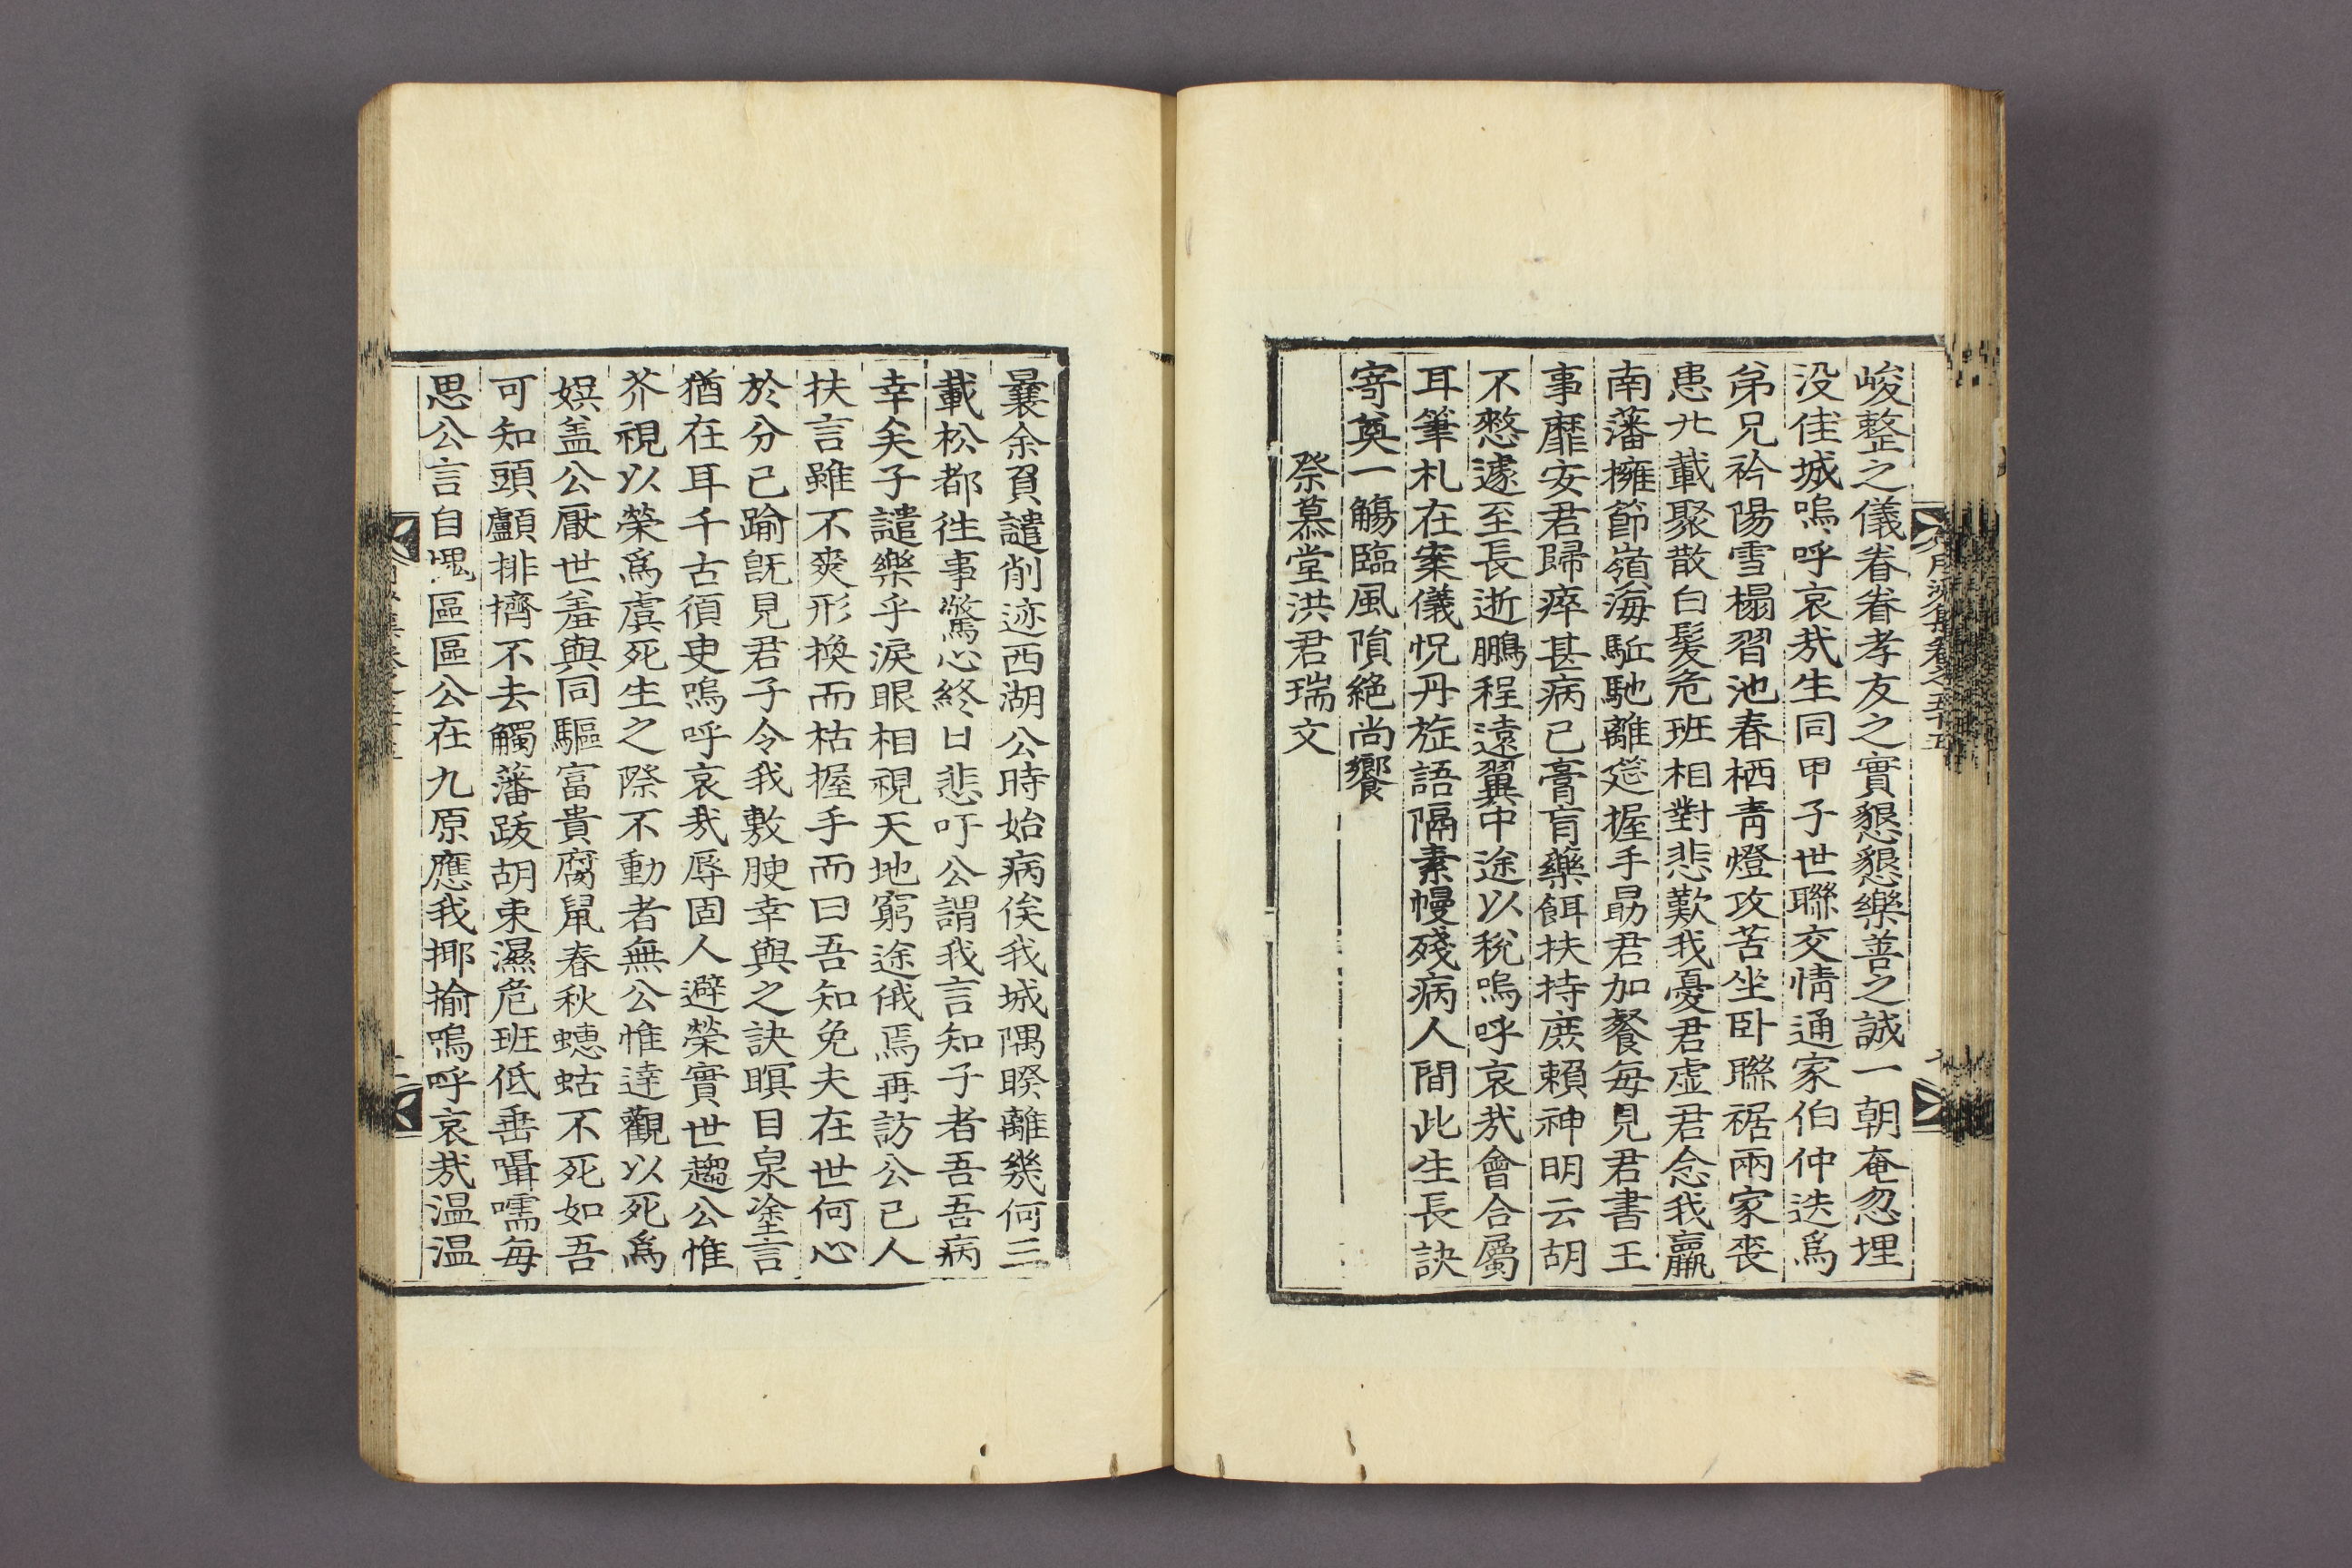 峻整之儀眷眷孝友之實懇懇樂善之誠一朝奄忽埋
没佳城嗚呼哀㢤生同甲子世聯交情通家伯仲迭爲
弟兄衿陽雪榻習池春栖靑燈攻苦坐卧聯裾兩家喪
患廿載聚散白髮危班相對悲歎我憂君虛君念我羸
南藩擁節嶺海駈馳離筵握手勗君加餐每見君書王
事靡安君歸瘁甚病已膏肓藥餌扶持庶賴神明云胡
不憗遽至長逝鵬程遠翼中途以稅嗚呼哀㢤會合屬
耳筆札在案儀怳丹旌語隔素幔殘病人間此生長訣
寄奠一觴臨風隕絶尙饗
祭慕堂洪君瑞文
曩余負譴削迹西湖公時始病俟我城隅睽離幾何三
載松都徃事驚心終日悲吁公謂我言知子者吾吾病
幸矣子譴樂乎淚眼相視天地窮途俄焉再訪公已人
扶言雖不爽形換而枯握手而曰吾知免夫在世何心
於分已踰旣見君子令我敷腴幸與之訣瞑目泉塗言
猶在耳千古須叟嗚呼哀㢤辱固人避榮實世趨公惟
芥視以榮爲虞死生之際不動者無公惟達觀以死爲
娯盖公厭世羞與同驅富貴腐鼠春秋蟪蛄不死如吾
可知頭顱排擠不去觸藩跋胡束濕危班低垂囁嚅每
思公言自愧區區公在九原應我揶揄嗚呼哀㢤温温